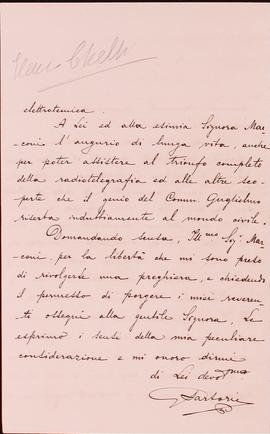 elettrotecnica.
A Lei ed alla esimia Signora Mar-
coni l'augurio di lunga vita, anche
per poter assistere al trionfo completo
della radiotelegrafia ed alle altre sco-
perte che il genio del Comm. Guglielmo
riserba indubbiamente al mondo civile.
Domandando scusa, Ill.mo Sig. Mar-
coni, per la libertà che mi sono preso
di rivolgerle una preghiera, e chiedendo
il permesso di porgere i miei reveren-
ti ossequi alla gentile Signora, Le
esprimo i sensi della mia peculiare
considerazione e mi onoro dirmi
di Lei devot.mo
Sartori